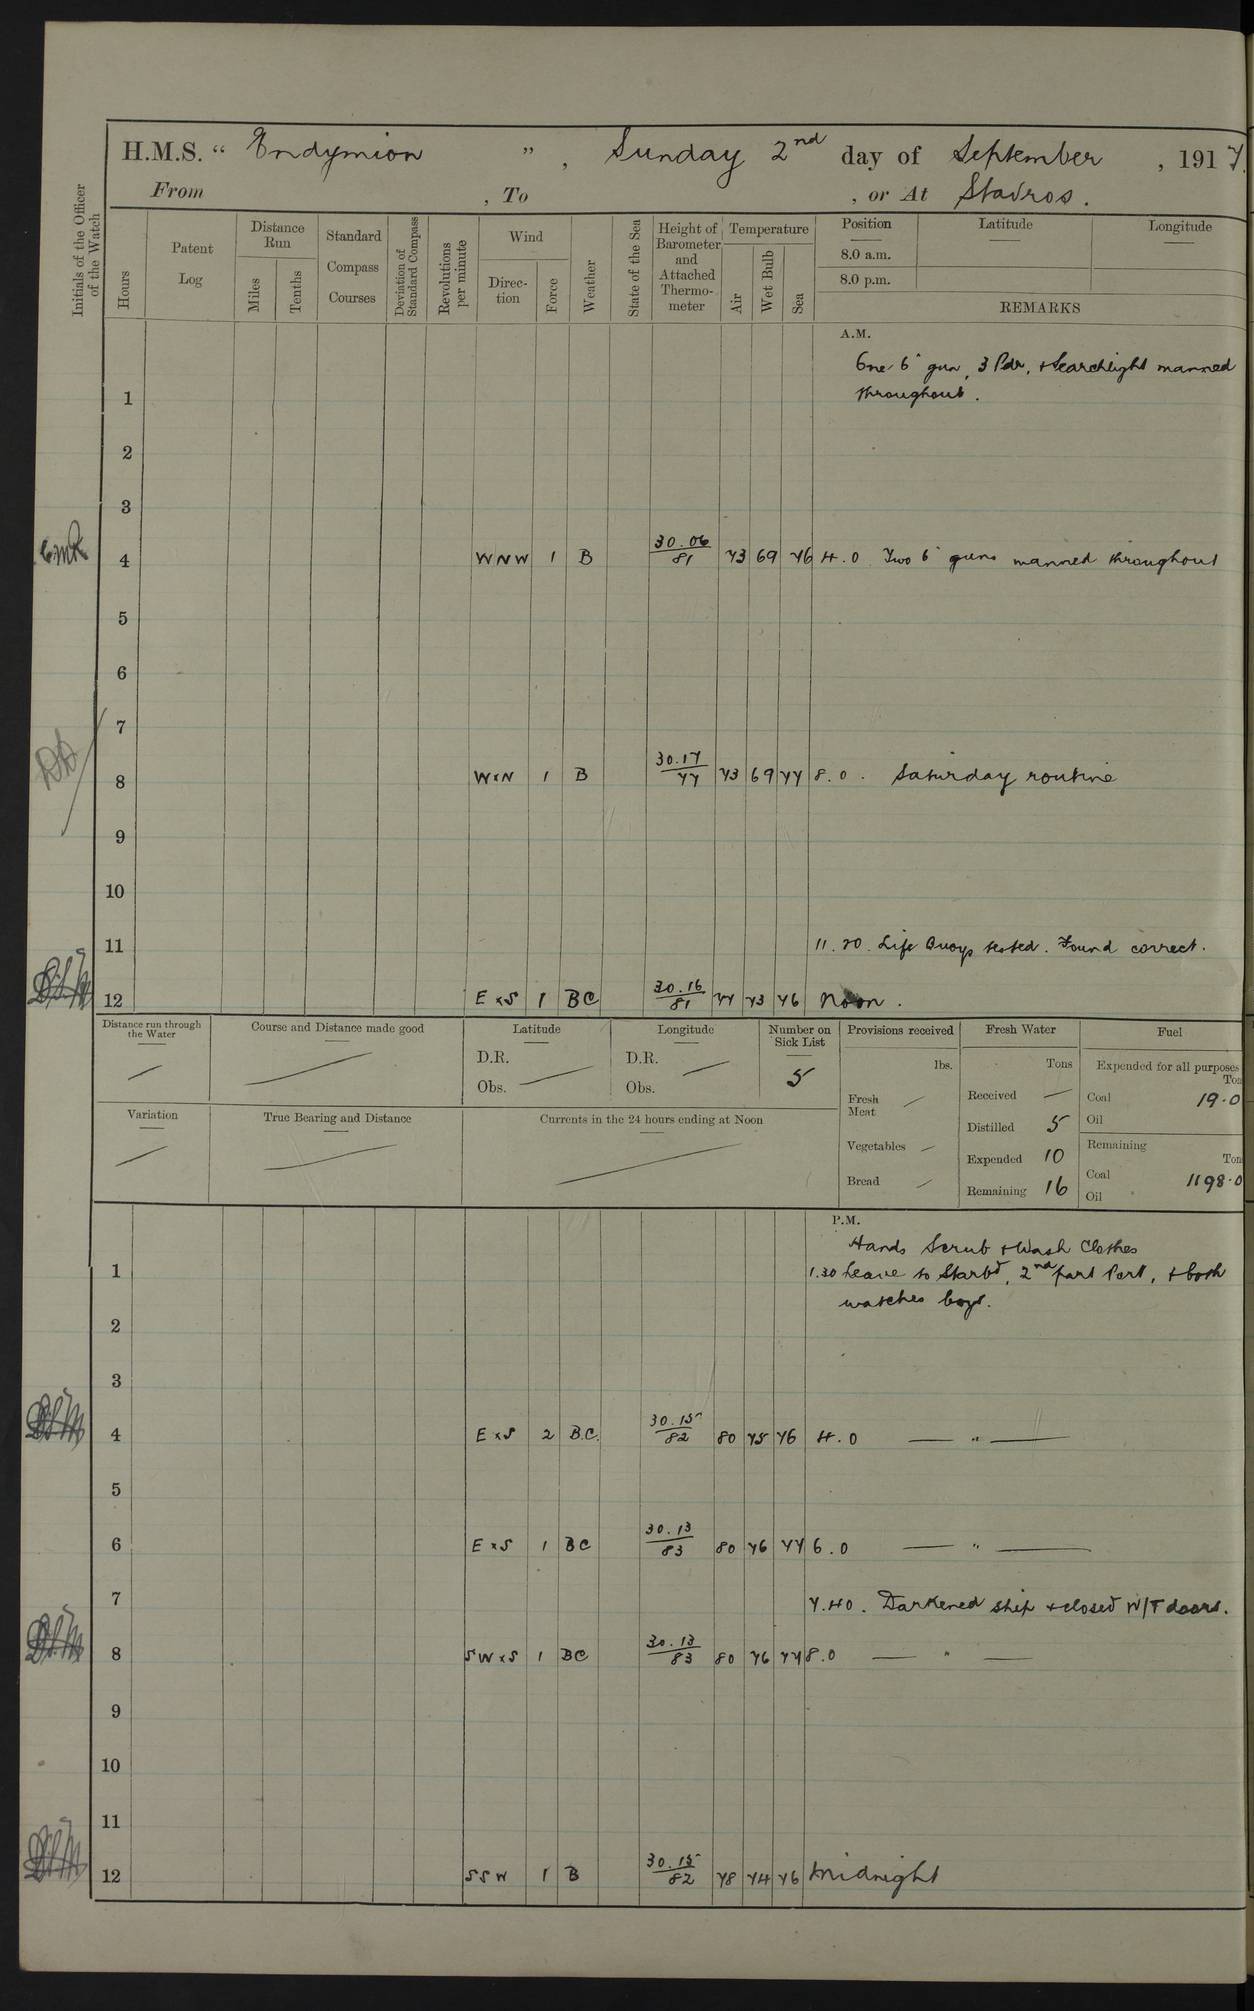 H.M.S. " Endymion ", Sunday 2nd day of September, 1917.
From , To , or At Stavros.
Initials of the Officer of the Watch
Hours
Patent Log
Distance Run
Miles
Tenths
Standard Compass Courses
Deviation of Standard Compass
Revolutions per minute
Wind
Direction
Force
Weather
State of the Sea
Height of Barometer and Attached Thermometer
Temperature
Air
Wet Bulb
Sea
Position Latitude Longitude
8.0 a.m.
8.0 p.m.
REMARKS
A.M.
One 6" gun, 3 Pdr, + Searchlight manned
throughout.
1
2
3
4 WNW 1 B 30.06/81 73 69 76 4.0 Two 6" guns manned throughout
5
6
7
8 WxN 1 B 30.17/77 73 69 77 8.0. Saturday routine
9
10
11 11.20. Life Buoys tested. Found correct.
12 E x S 1 BC 30.16/81 77 73 76 Noon.
Distance run through the Water
Course and Distance made good
Latitude
D.R.
Obs.
Longitude
D.R.
Obs.
Number on Sick List
5
Variation
True Bearing and Distance
Currents in the 24 hours ending at Noon
Provisions received
lbs.
Fresh Meat
Vegetables
Bread
Fresh Water
Tons
Received
Distilled 5
Expended 10
Remaining 16
Fuel
Expended for all purposes
Ton
Coal 19.0
Oil
Remaining
Ton
Coal 1198.0
Oil
P.M.
Hands Scrub + Wash Clothes
1 1.30 Leave to Starbd, 2nd part Port, + both
watches boys.
2
3
4 E x S 2 B.C. 30.15/82 80 75 76 4.0 — " —
5
6 E x S 1 BC 30.13/83 80 76 77 6.0 — " —
7 7.40. Darkened ship + closed W/T doors.
8 SW x S 1 BC 30.13/83 80 76 77 8.0 — " —
9
10
11
12 SSW 1 B 30.15/82 78 74 76 Midnight